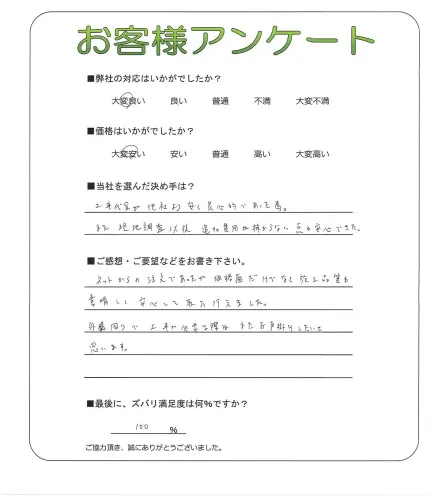 お客様アンケート
■弊社の対応はいかがでしたか？
大変良い　良い　普通　不満　大変不満
■価格はいかがでしたか？
大変安い　安い　普通　高い　大変高い
■当社を選んだ決め手は？
工事代金が他社より安く良心的であった為。
また現地調査以後 追加費用が掛からない点も安心できた。
■ご感想・ご要望などをお書き下さい。
ネットからの注文であったが 価格面だけでなく施工品質も
素晴しく 安心して 行えました。
外構周りで 工事が必要な際は またお声掛けしたいと
思います。
■最後に、ズバリ満足度は何％ですか？
100 ％
ご協力頂き、誠にありがとうございました。